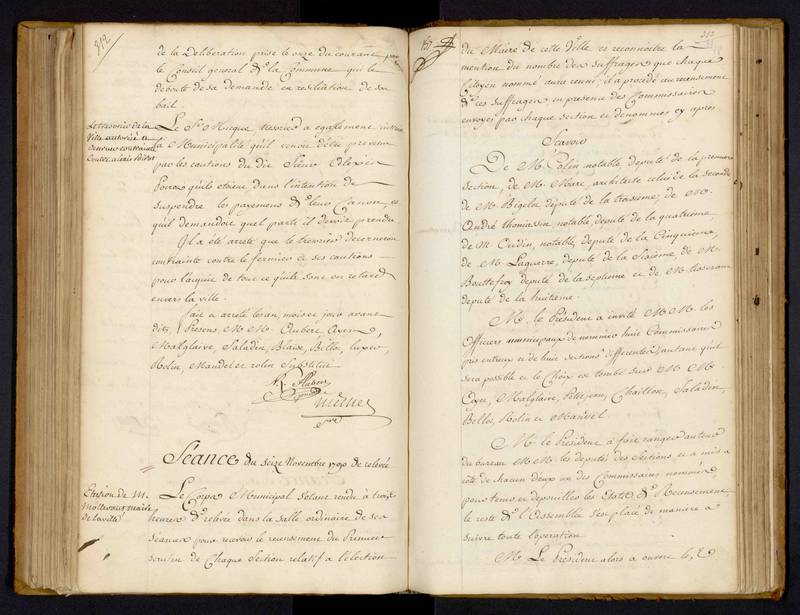 312
de la Deliberation prise le onze du courant par
le Conseil general de la Commune qui le
deboute de sa demande en resiliation de son
bail
Le Sr. Mique, tresorier a egalement
la Municipalité qu'il venoit d'etre prevenu
par les cautions du dit Sieur
qu'ils etoient dans l'intention de
suspendre les payemens de leur Canon, et
qu'il demandoit quel parti il devoit prendre
Il a été arreté que le tresorier decerneroit
contrainte contre le fermier et ses cautions
pour l'acquit de tout ce qu'ils sont en retard
envers la ville.
fait et arreté les an, mois et jour avant
dits, Presens, M M. Aubert
Malglaive, Saladin, Blaise, Bellot, luxer
Rolin, Mandel et rolin Substitut
Seance du seize Novembre 1790 de relevée
Election de M.
Mollevaut maire
de la ville
Le Corps Municipal s'etant rendu à trois
heures de relevée dans la salle ordinaire de ses
séances pour recevoir le recensement du Premier
scrutin de Chaque Section relatif a l'election
313
du Maire de cette Ville et reconnoitre la
mention du nombre des suffrages que chaque
Citoyen nommé aura reuni, il a procedé au recensement
de ces suffrages en presence des Commissaires
envoyés par chaque section et denommés cy apres
Scavoir
De M. Colin notable député de la premiere
section, de M. Marc, architecte celui de la seconde
de M. Bigelot député de la troisieme, de M.
André thomassin, notable député de la quatrieme
de M. Oudin, notable, député de la Cinquieme,
de M. Laguarre, député de la Sixieme, de M.
Bouteffroy député de la septieme et de M. tisserant
député de la huitieme.
M. le Président a invité MM. les
Officiers municipaux de nommer huit Commissaires
pris entr'eux et de huit sections differentes autant qu'il
sera possible et le Choix est tombé sur M M
Malglaive, Petitjean, Chaillon, Saladin,
Bellot, Rolin et Mandel
M. le Président a fait ranger autour
du bureau MM. les deputés des Sections et a mis a
coté de chacun d'eux un des Commissaires nommés
pour tenir et depouiller les Etats de Recensement
le reste de l'Assemblée s'est placé de maniere a
suivre toute l'operation
M. Le Président alors a ouvert le